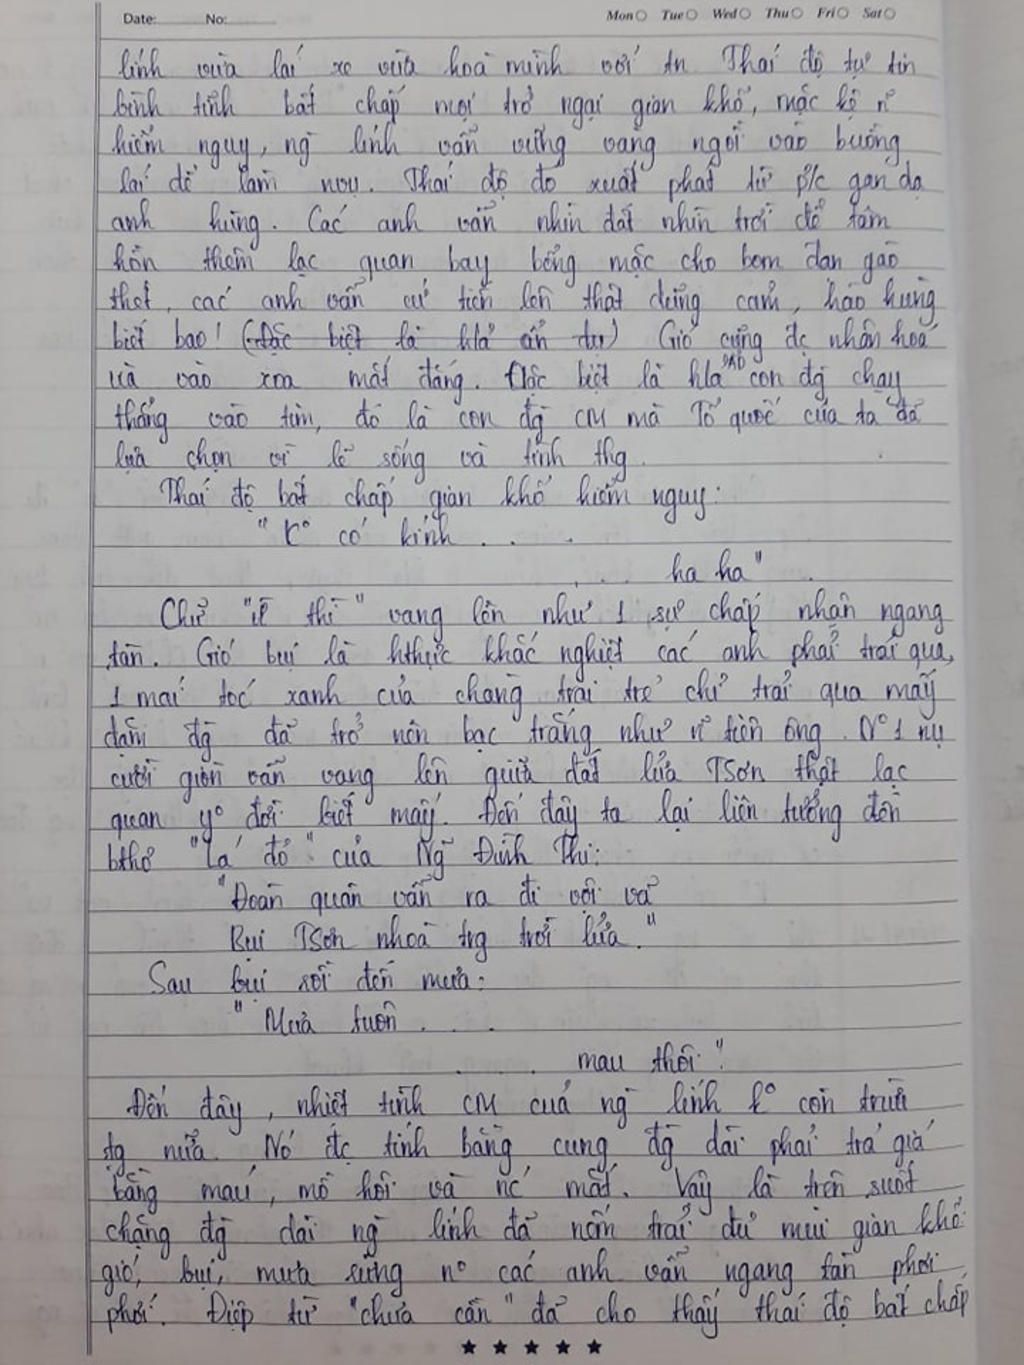 Date: No: Mon Tue Wed Thu Fri Sat
lính vừa lái xe vừa hoà mình với tn Thái độ tự tin
bình tĩnh bất chấp mọi trở ngại gian khổ, mặc kệ n~
hiểm nguy, ng lính vẫn vững vàng ngồi vào buồng
lái để làm nvụ. Thái độ đó xuất phát từ p/c gan dạ
anh hùng. Các anh vẫn nhìn đất nhìn trời để tâm
hồn thêm lạc quan bay bổng mặc cho bom đạn gào
thét, các anh vẫn cứ tiến lên thật dũng cảm, hào hùng
biết bao! (Đặc biệt là h/ả ẩn dụ) Gió cũng đc nhân hoá
và vào xoa mắt đắng. Đặc biệt là h/a con đg chạy
thẳng vào tim, đó là con đg CM mà Tổ quốc của ta đã
lựa chọn vì lẽ sống và tình thg.
Thái độ bất chấp gian khổ hiểm nguy:
"K° có kính . . .
. . . ha ha".
Chữ "ừ thì" vang lên như 1 sự chấp nhận ngang
tàn. Gió bụi là hthực khắc nghiệt các anh phải trải qua,
1 mái tóc xanh của chàng trai trẻ chỉ trải qua mấy
dặm đg đã trở nên bạc trắng như n~ tiên ông. N° 1 nụ
cười giòn vẫn vang lên giữa đất lửa TSơn thật lạc
quan y° đời biết mấy. Đến đây ta lại liên tưởng đến
bthơ "Lá đỏ" của Ng~ Đình Thi:
"Đoàn quân vẫn ra đi vội vã
Bụi TSơn nhoà trg trời lửa."
Sau bụi rồi đến mưa:
"Mưa tuôn . . .
. . . mau thôi"
Đến đây, nhiệt tình CM của ng lính k° còn trừu
tg nữa. Nó đc tính bằng cung đg dài phải trả giá
bằng máu, mồ hôi và nc mắt. Vậy là trên suốt
chặng đg dài ng lính đã nếm trải đủ mùi gian khổ:
gió, bụi, mưa rừng n° các anh vẫn ngang tàn phơi
phới. Điệp từ "chưa cần" đã cho thấy thái độ bất chấp